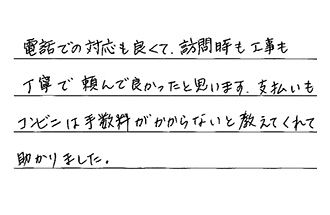 電話での対応も良くて、訪問時も工事も
丁寧で頼んで良かったと思います。支払いも
コンビニは手数料がかからないと教えてくれて
助かりました。